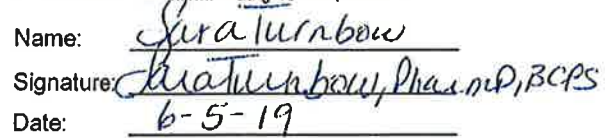 Name: Sara Turnbow
Signature: Sara Turnbow, PharmD, BCPS
Date: 6-5-19